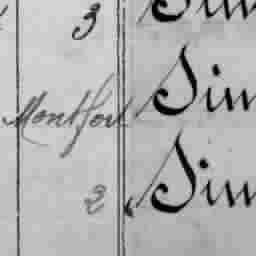 3 Sim
Montfort Sim
2 Sim